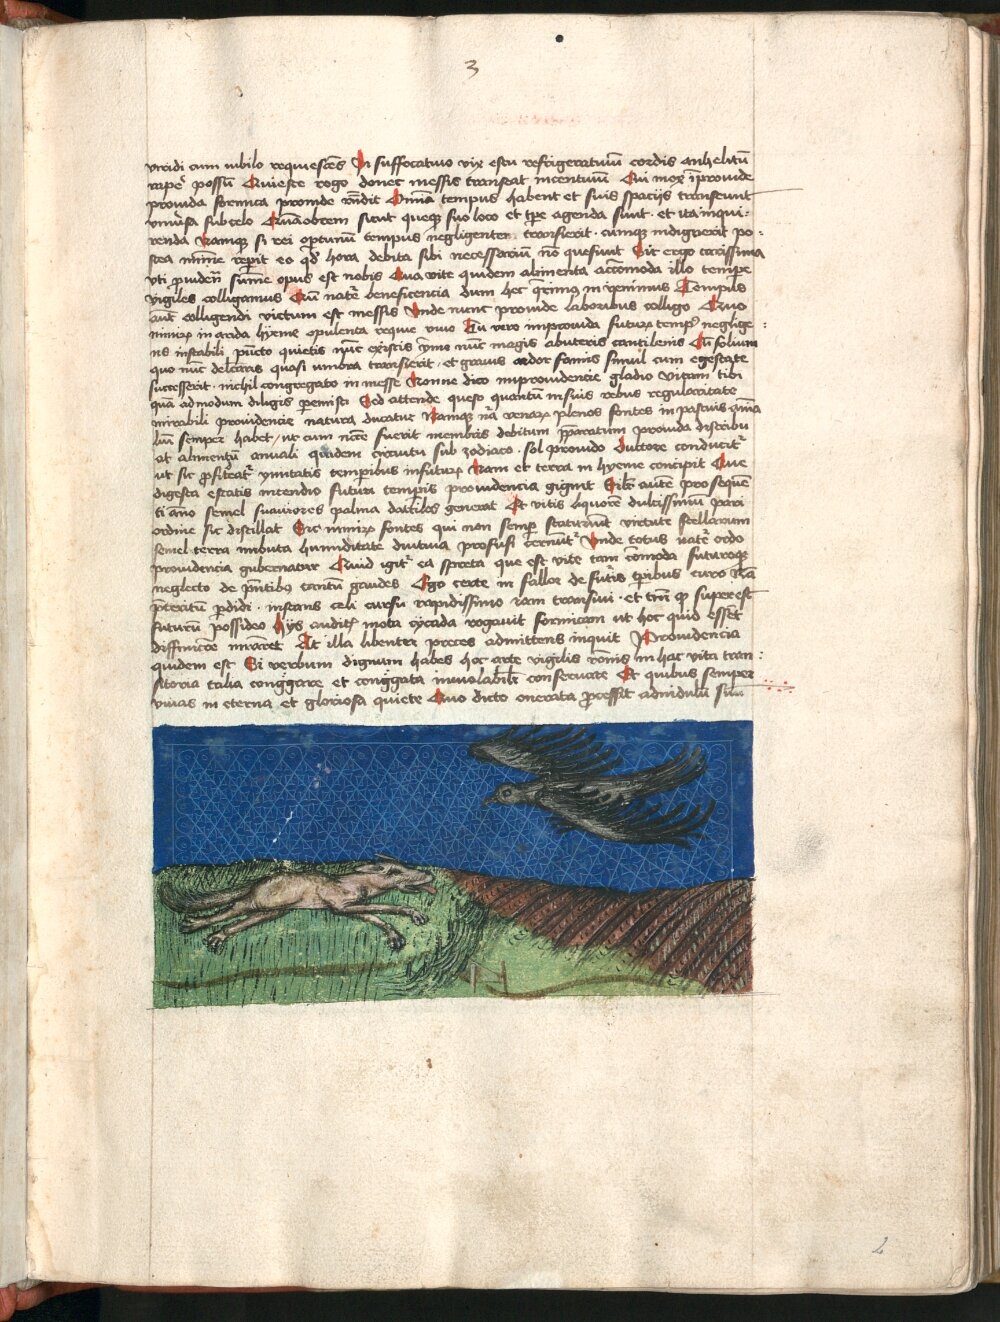 3
viridi cum nubilo requiescēs Ni suffocatiuo vix estu refrigeratiuum cordis anhelitū
rapē possū Quiesce rogo donec messis transeat incentiuū Cui mox īprouide
prouida formica proinde rn̄dit Omnia tempus habent et suis spacijs transeunt
vniūsa sub celo Quāobrem sicut queq suo loco et tp̄e agenda sunt · et ita inqui-
renda Namq si rei optinū tempus negligenter transierit · cumq indiguerit po:
stea minime rep̄it eo qd hora debita sibi necessariū nō quesiuit Sit ergo carissima
vti prudenū sūme opus est nobis Qua vite quidem alimenta accōmoda illo tempe
vigiles colligamus Cū nate beneficencia dum hec prima inuenimus Tempus
aut colligendi victum est messis Vnde nunc prouide laboribus colligo Quo
nimirum in arida hyeme opulenta requie viuo Tu vero improuida futurorum temp neglige:
ns instabili pūcto quietis nūc existis ymo nūc magis abuteris cantilenis Cū solium
quo nūc delectaris quasi umbra transierit · et grauis ardor famis simul cum egestate
successerit · nichil congregato in messe Nonne dico improuidencie gladio vitam tibi
quā admodum diligis p̄emisti Sed attende queso quantū in suis rebus regularitate
mirabili prouidencie natura ducatur Namq nā venarum plenos fontes in pascuis aīa
liū semper habet / ut cum nc̄ce fuerit membris debitum p̄paratum prouida distribu
at alimentū annuali quidem circuitu sub zodiaco · sol prouido ductore conducit
ut sic proficeat vnitatis temporibus in futurum Nam et terra in hyeme concipit Que
digesta estatis incendio futuri tempis prouidencia gignit Sibi aute prosequen
ti āno semel suauiores palma dactiles generat Et vitis liquore dulcissimū pari
ordine sic distillat Sic nimirum fontes qui non semp scaturiut virtute stellarum
semel terra imbuta humiditate diutina profusi cernut Vnde totus nate ordo
prouidencia gubernatur Quid igit ea spreta que est vite tam cōmoda futuroq
neglecto de p̄ntibus cantū gaudes Ego certe ni fallor de futis tp̄ibus curo Nā
p̄teritū p̄didi · instans celi cursu rapidissimo iam transiui · et tm̄ qd superest
futurū possideo Hijs audit mota cycada rogauit formicam ut hoc quid esset
diffinicōe mraret At illa libenter preces admittens inquit Prouidencia
quidem est Si verbum dignum habes hoc arte vigilis rōnis in hac vita tran:
sitoria talia congregare et congregata inuiolabilit conseruare Et quibus semper
viuas in eterna et gloriosa quiete Quo dicto onerata processit ad nidulū suū
2